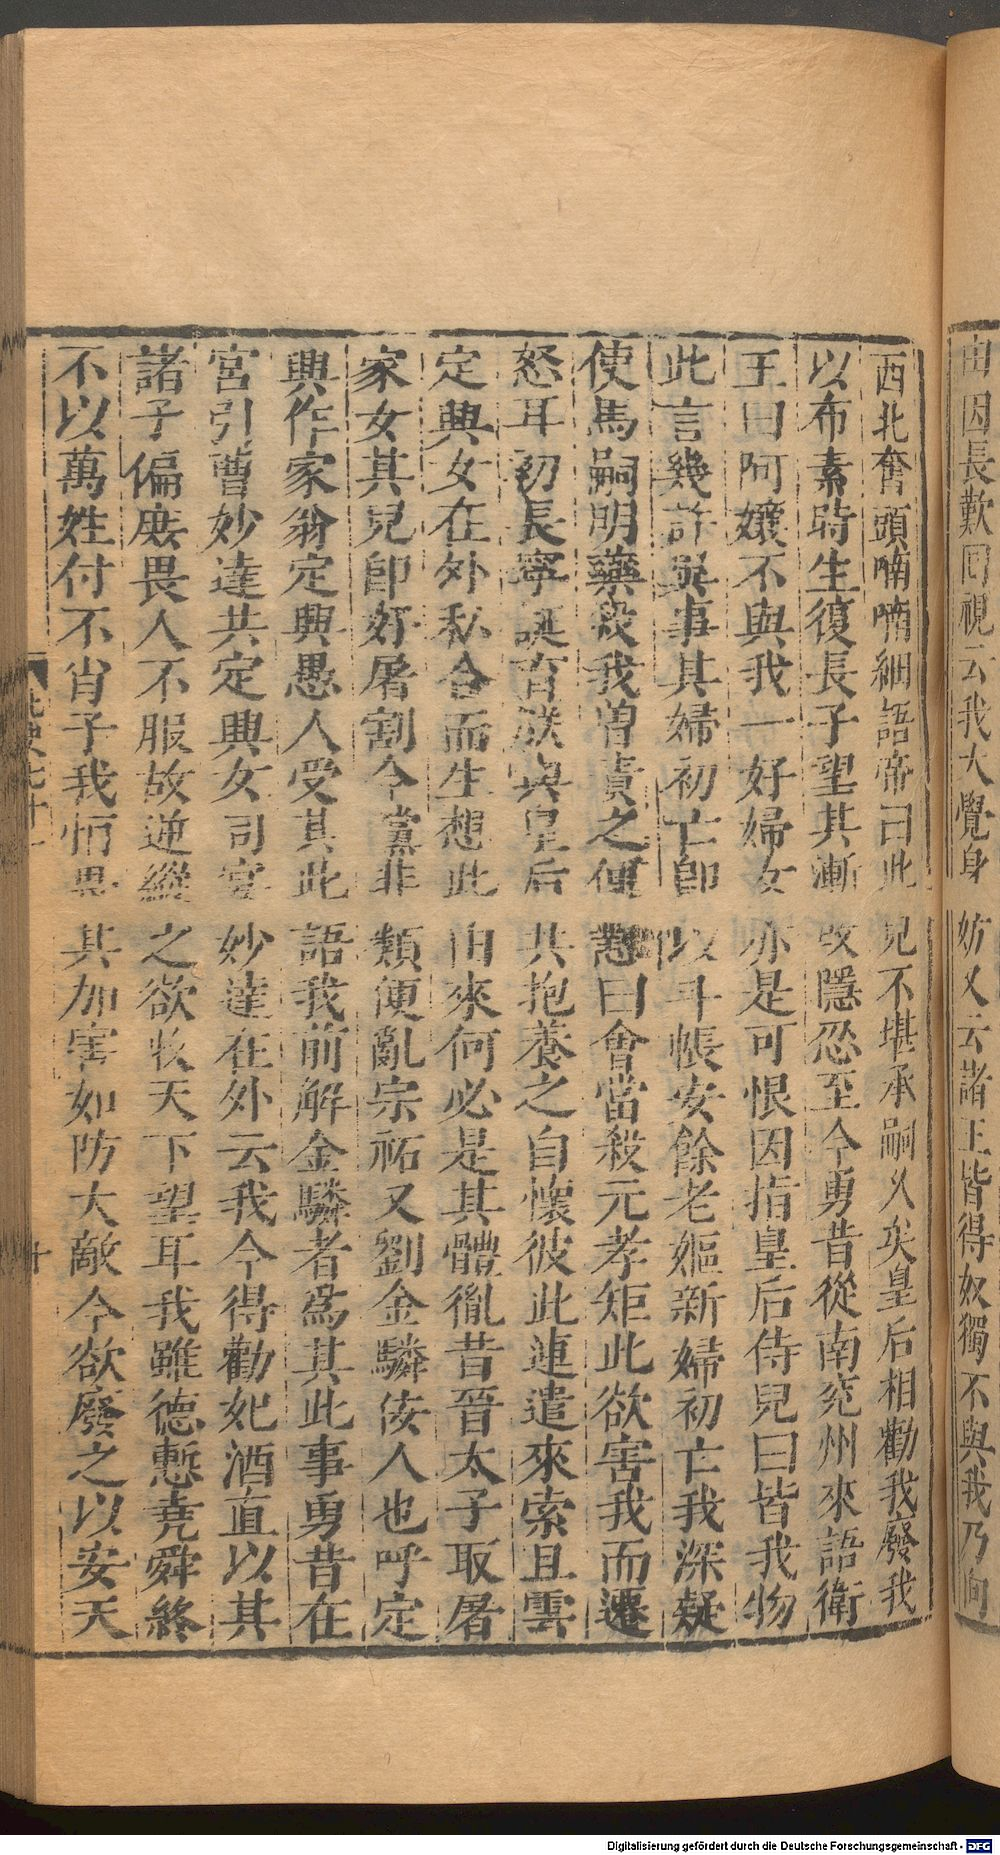 由因長歎回視云我大覺身妨又云諸王皆得奴獨不與我乃向
西北奮頭喃喃細語帝曰此兒不堪承嗣久矣皇后相勸我廢我
以布素時生復長子望其漸改隱忍至今勇昔從南兖州來語衛
王曰阿孃不與我一好婦女亦是可恨因指皇后侍兒曰皆我物
此言幾許異事其婦初亡卽以斗帳安餘老嫗新婦初亡我深疑
使馬嗣明藥殺我曾責之便懟曰會當殺元孝矩此欲害我而遷
怒耳初長寧誕育朕與皇后共抱養之自懷彼此連遣來索且雲
定興女在外私合而生想此由來何必是其體胤昔晉太子取屠
家女其兒卽好屠割今黨非類便亂宗祏又劉金驎佞人也呼定
興作家翁定興愚人受其此語我前解金驎者爲其此事勇昔在
宮引曹妙達共定興女同宴妙達在外云我今得勸妃酒直以其
諸子偏庶畏人不服故逆縱之欲收天下望耳我雖德慙堯舜終
不以萬姓付不肖子我恒畏其加害如防大敵今欲廢之以安天
北史七十一
十
Digitalisierung gefördert durch die Deutsche Forschungsgemeinschaft - DFG